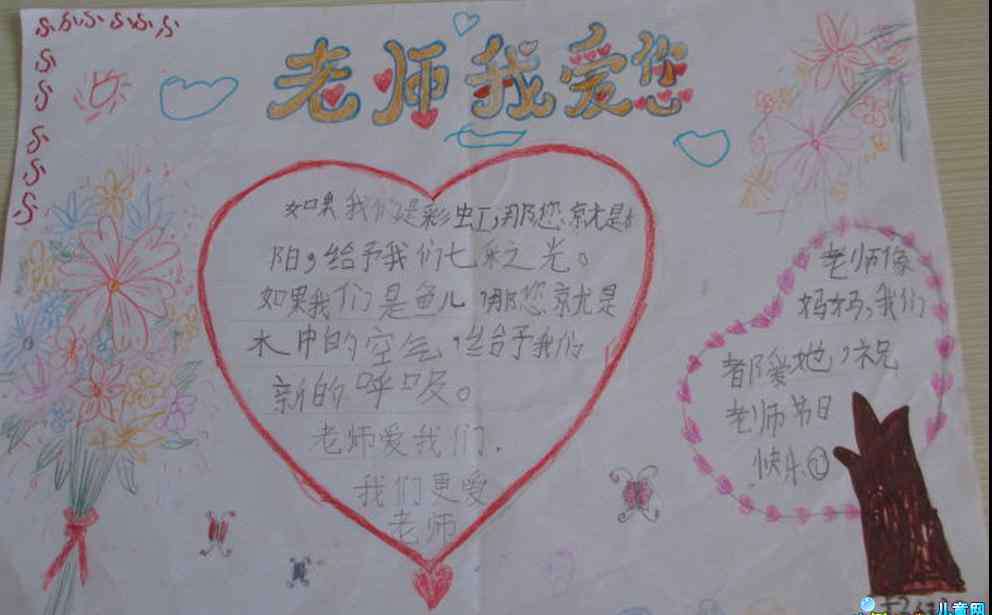 老师我爱您
如果我们是彩虹,那您就是太
阳,给予我们七彩之光。
如果我们是鱼儿,那您就是
水中的空气,给予我们
新的呼吸。
老师爱我们,
我们更爱
老师
老师像
妈妈,我们
都爱她,祝
老师节日
快乐
儿童网